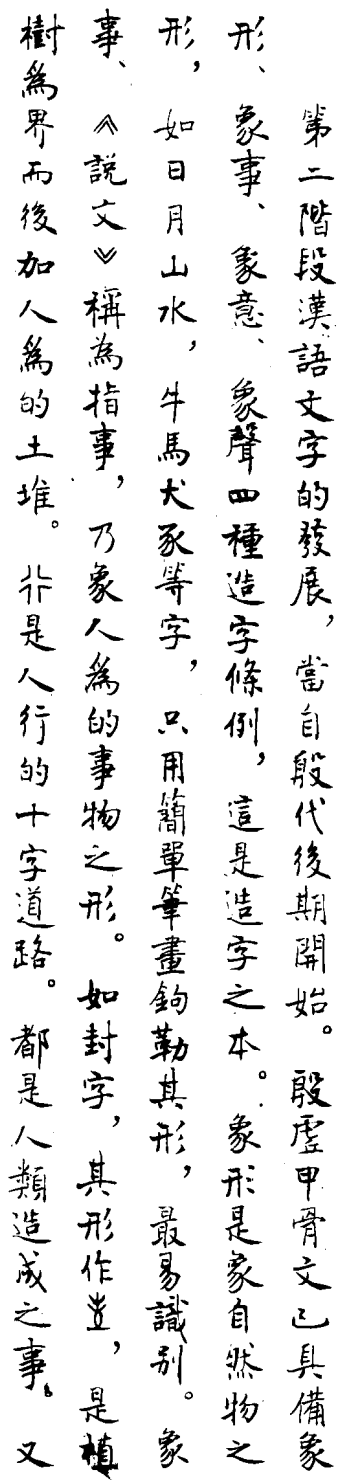 第二階段漢語文字的發展，當自殷代後期開始。殷虛甲骨文已具備象
形、象事、象意、象聲四種造字條例，這是造字之本。象形是象自然物之
形，如日月山水，牛馬犬豕等字，只用簡單筆畫鉤勒其形，最易識别。象
事、《説文》稱為指事，乃象人爲的事物之形。如封字，其形作𡉚，是植
樹爲界而後加人爲的土堆。𠁥是人行的十字道路。都是人類造成之事。又